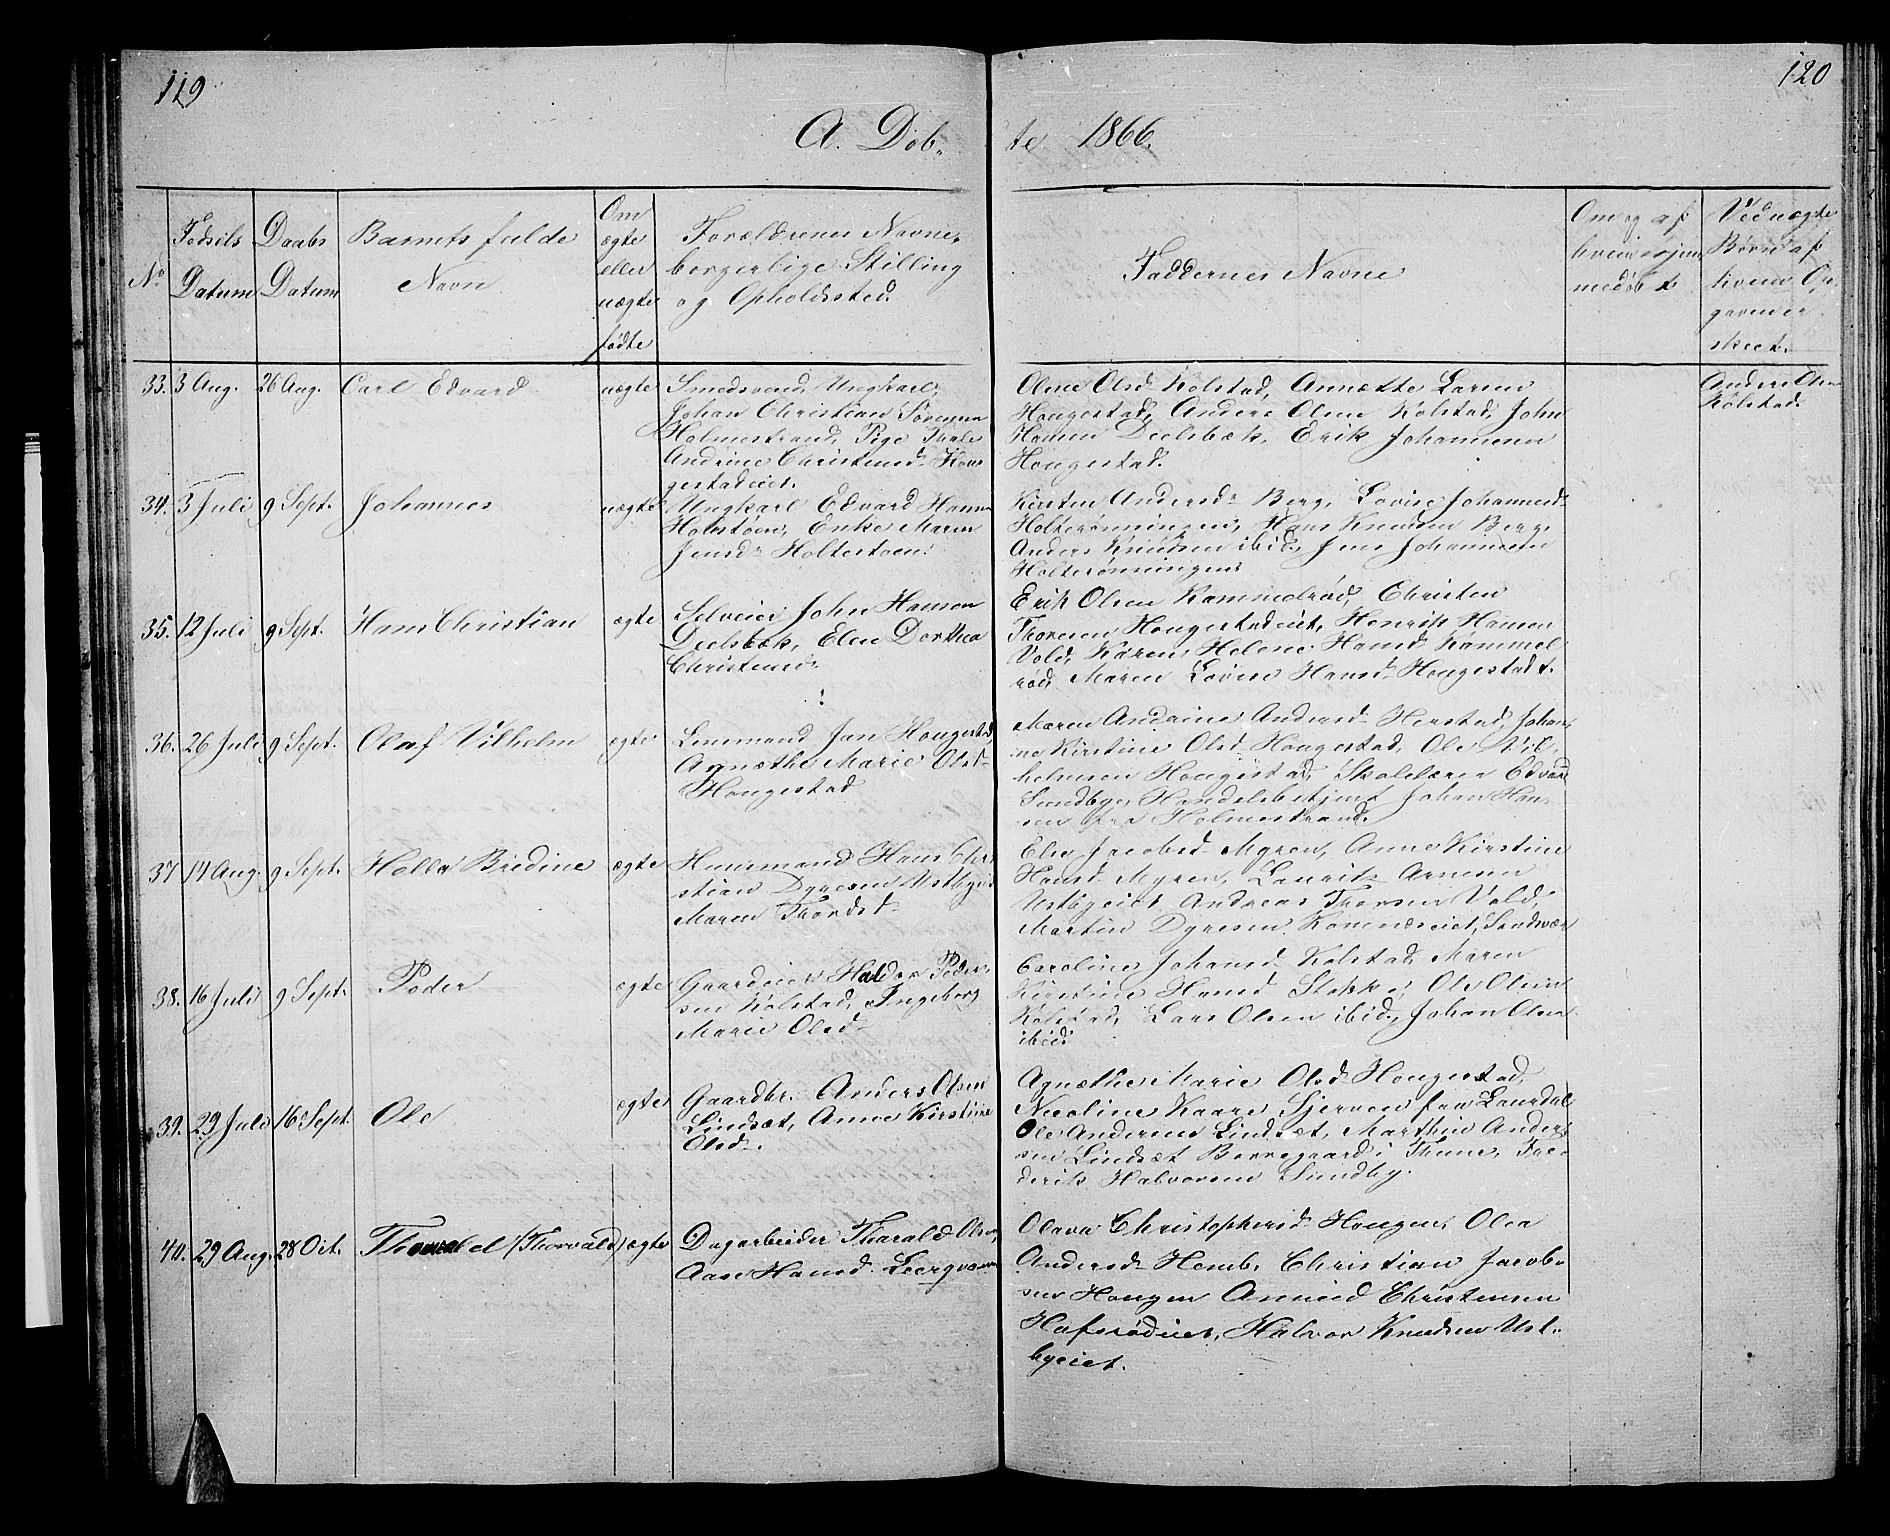 119
120
A. Døb-
te 1866.
No
Fødsels Datum
Daabs Datum
Barnets fulde Navn
Om ægte eller uægte fødte
Forældrenes Navne, borgerlige Stilling og Opholdssted.
Faddernes Navne
Om og af hvem hjemmedøbt
Ved uægte Børn af hvem Opgaven er skeet.
33. 3 Aug. 26 Aug. Carl Edvard uægte
Smedsvend, Ungkarl,
Johan Christian Sørensen
Holmestrand, Pige Thale
Andrine Christensd. Houg
gestadeiet.
Oline Olsd. Kolstad, Annætte Larsen
Hougestad, Anders Olsen Kolstad, John
Hansen Deelsbæk, Erik Johannesen
Hougestad.
Anders Olsen
Kolstad.
34. 3 Juli 9 Sept. Johannes uægte
Ungkarl Edvard Hansen
Holtstøen, Enke Maren
Jensd. Holtestøen.
Kirsten Andersd. Berg, Lovise Johannesd.
Holterønningen, Hans Knudsen Berg,
Anders Knudsen ibid., Jens Johannesen
Holterønningen.
35. 12 Juli 9 Sept. Hans Christian ægte
Selveier John Hansen
Deelsbæk, Elen Dorthea
Christensd.
Erik Olsen Rammelrød, Christen
Thoresen Hougestadeiet, Henrik Hansen
Vold, Karen Helene Hansd. Rammel
rød, Maren Lovise Hansd. Hougestadt.
36. 26 Juli 9 Sept. Olaf Vilhelm ægte
Lensmand Jan Hougestad,
Agnæthe Marie Olsd.
Hougestad
Maren Andrine Andersd. Herstad, Johan
ne Kirstine Olsd. Hougestad, Ole Vil-
helmsen Hougestad, Skolelærer Edvard
Sundbye, Handelsbetjent Johan Han-
sen fra Holmestrand.
37 14 Aug. 9 Sept. Helle Bredine ægte
Huusmand Hans Chri
stian Dyresen Ustbyeie
Maren Thordsd.
Else Jacobsd. Myren, Anne Kirstine
Hansd. Myren, Laurits Arnesen
Ustbyeiet Andreas Thorsen Vold,
Martin Dyresen Ramnæseiet, Sandsvær
38. 16 Juli 9 Sept. Peder ægte
Gaardeier Halvor Peder-
sen Kolstad, Ingeborg
Marie Olsd.
Caroline Johansd. Kolstad Maren
Kirstine Hansd. Stokke, Ole Olsen
Kolstad, Lars Olsen ibid., Johan Olsen
ibid.
39. 29 Juli 16 Sept. Ole ægte
Gaardbr. Anders Olsen
Lindsæt, Anne Kirstine
Olsd.
Agnæthe Marie Olsd. Hougestad,
Nicoline Kaare Sjerven fra Laurdal
Ole Andersen Lindsæt, Marthin Ander
sen Lindsæt Borregaard i Thune, Fre-
derik Halvorsen Sundby.
40. 29 Aug. 28 Oct. Thorvald (Thorvald) ægte
Dagarbeider Tharald Olsen,
Aase Hansd. Leergraven
Olava Christophersd. Hougen, Olea
Andersd. Hemb, Christian Jacob-
sen Hougen Amund Christensen
Hafsrødeiet, Halvor Knudsen Ust-
byeiet.